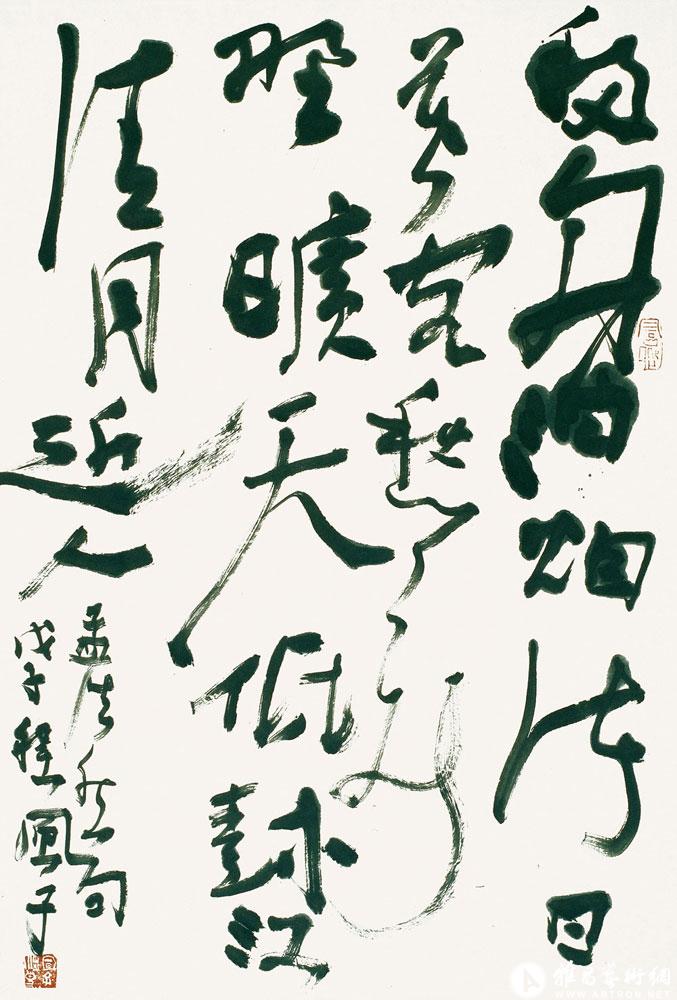 移舟泊烟渚日
暮客愁新
野曠天低樹江
清月近人
孟浩然句
戊子程風子
雅昌藝術網
WWW.ARTRON.NET